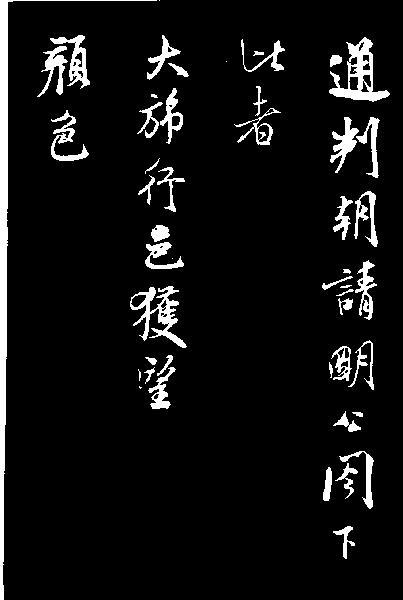 通判朝請明公閣下
比者
大旆行邑獲望
顏色